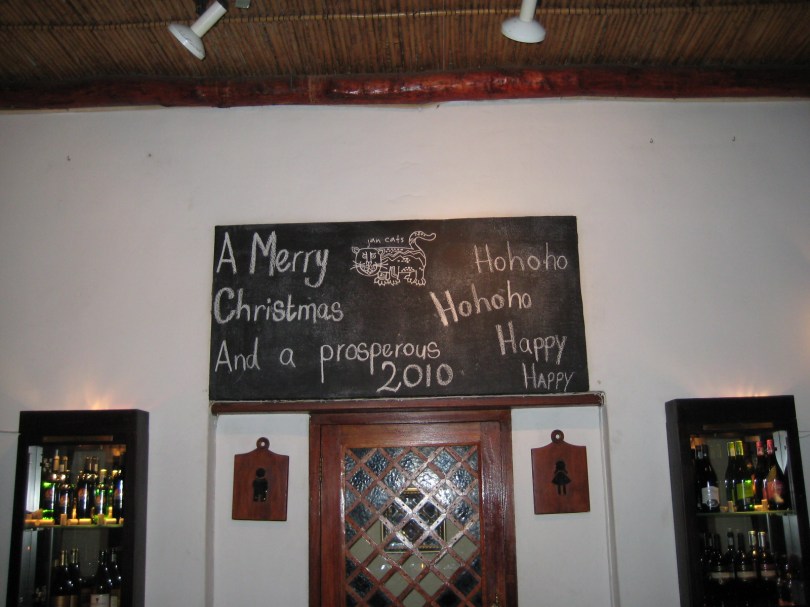 A Merry
Christmas
And a prosperous
2010
jan cats
Hohoho
Hohoho
Happy
Happy